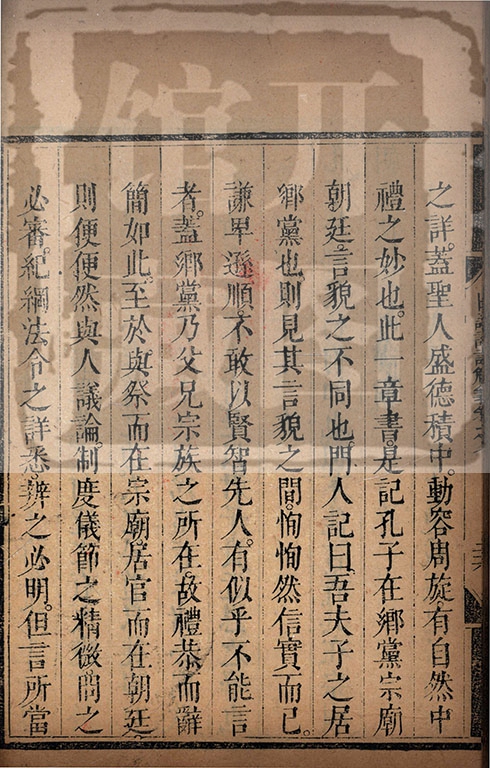 之詳。蓋聖人盛德積中。動容周旋。有自然中
禮之妙也。此一章書。是記孔子在鄉黨宗廟
朝廷。言貌之不同也。門人記曰。吾夫子之居
鄉黨也。則見其言貌之間。恂恂然信實而已。
謙卑遜順。不敢以賢智先人。有似乎不能言
者。蓋鄉黨乃父兄宗族之所在。故禮恭而辭
簡如此。至於與祭而在宗廟。居官而在朝廷。
則便便然與人議論。制度儀節之精微。問之
必審。紀綱法令之詳悉。辨之必明。但言所當